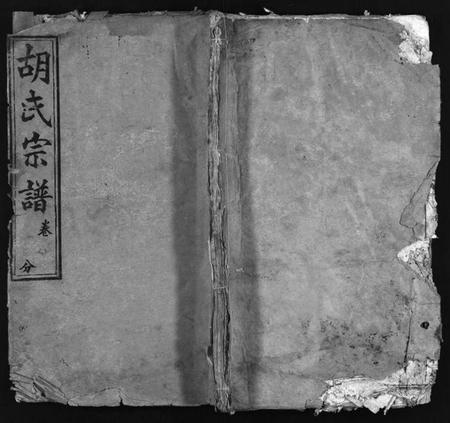 胡氏宗譜
卷
分